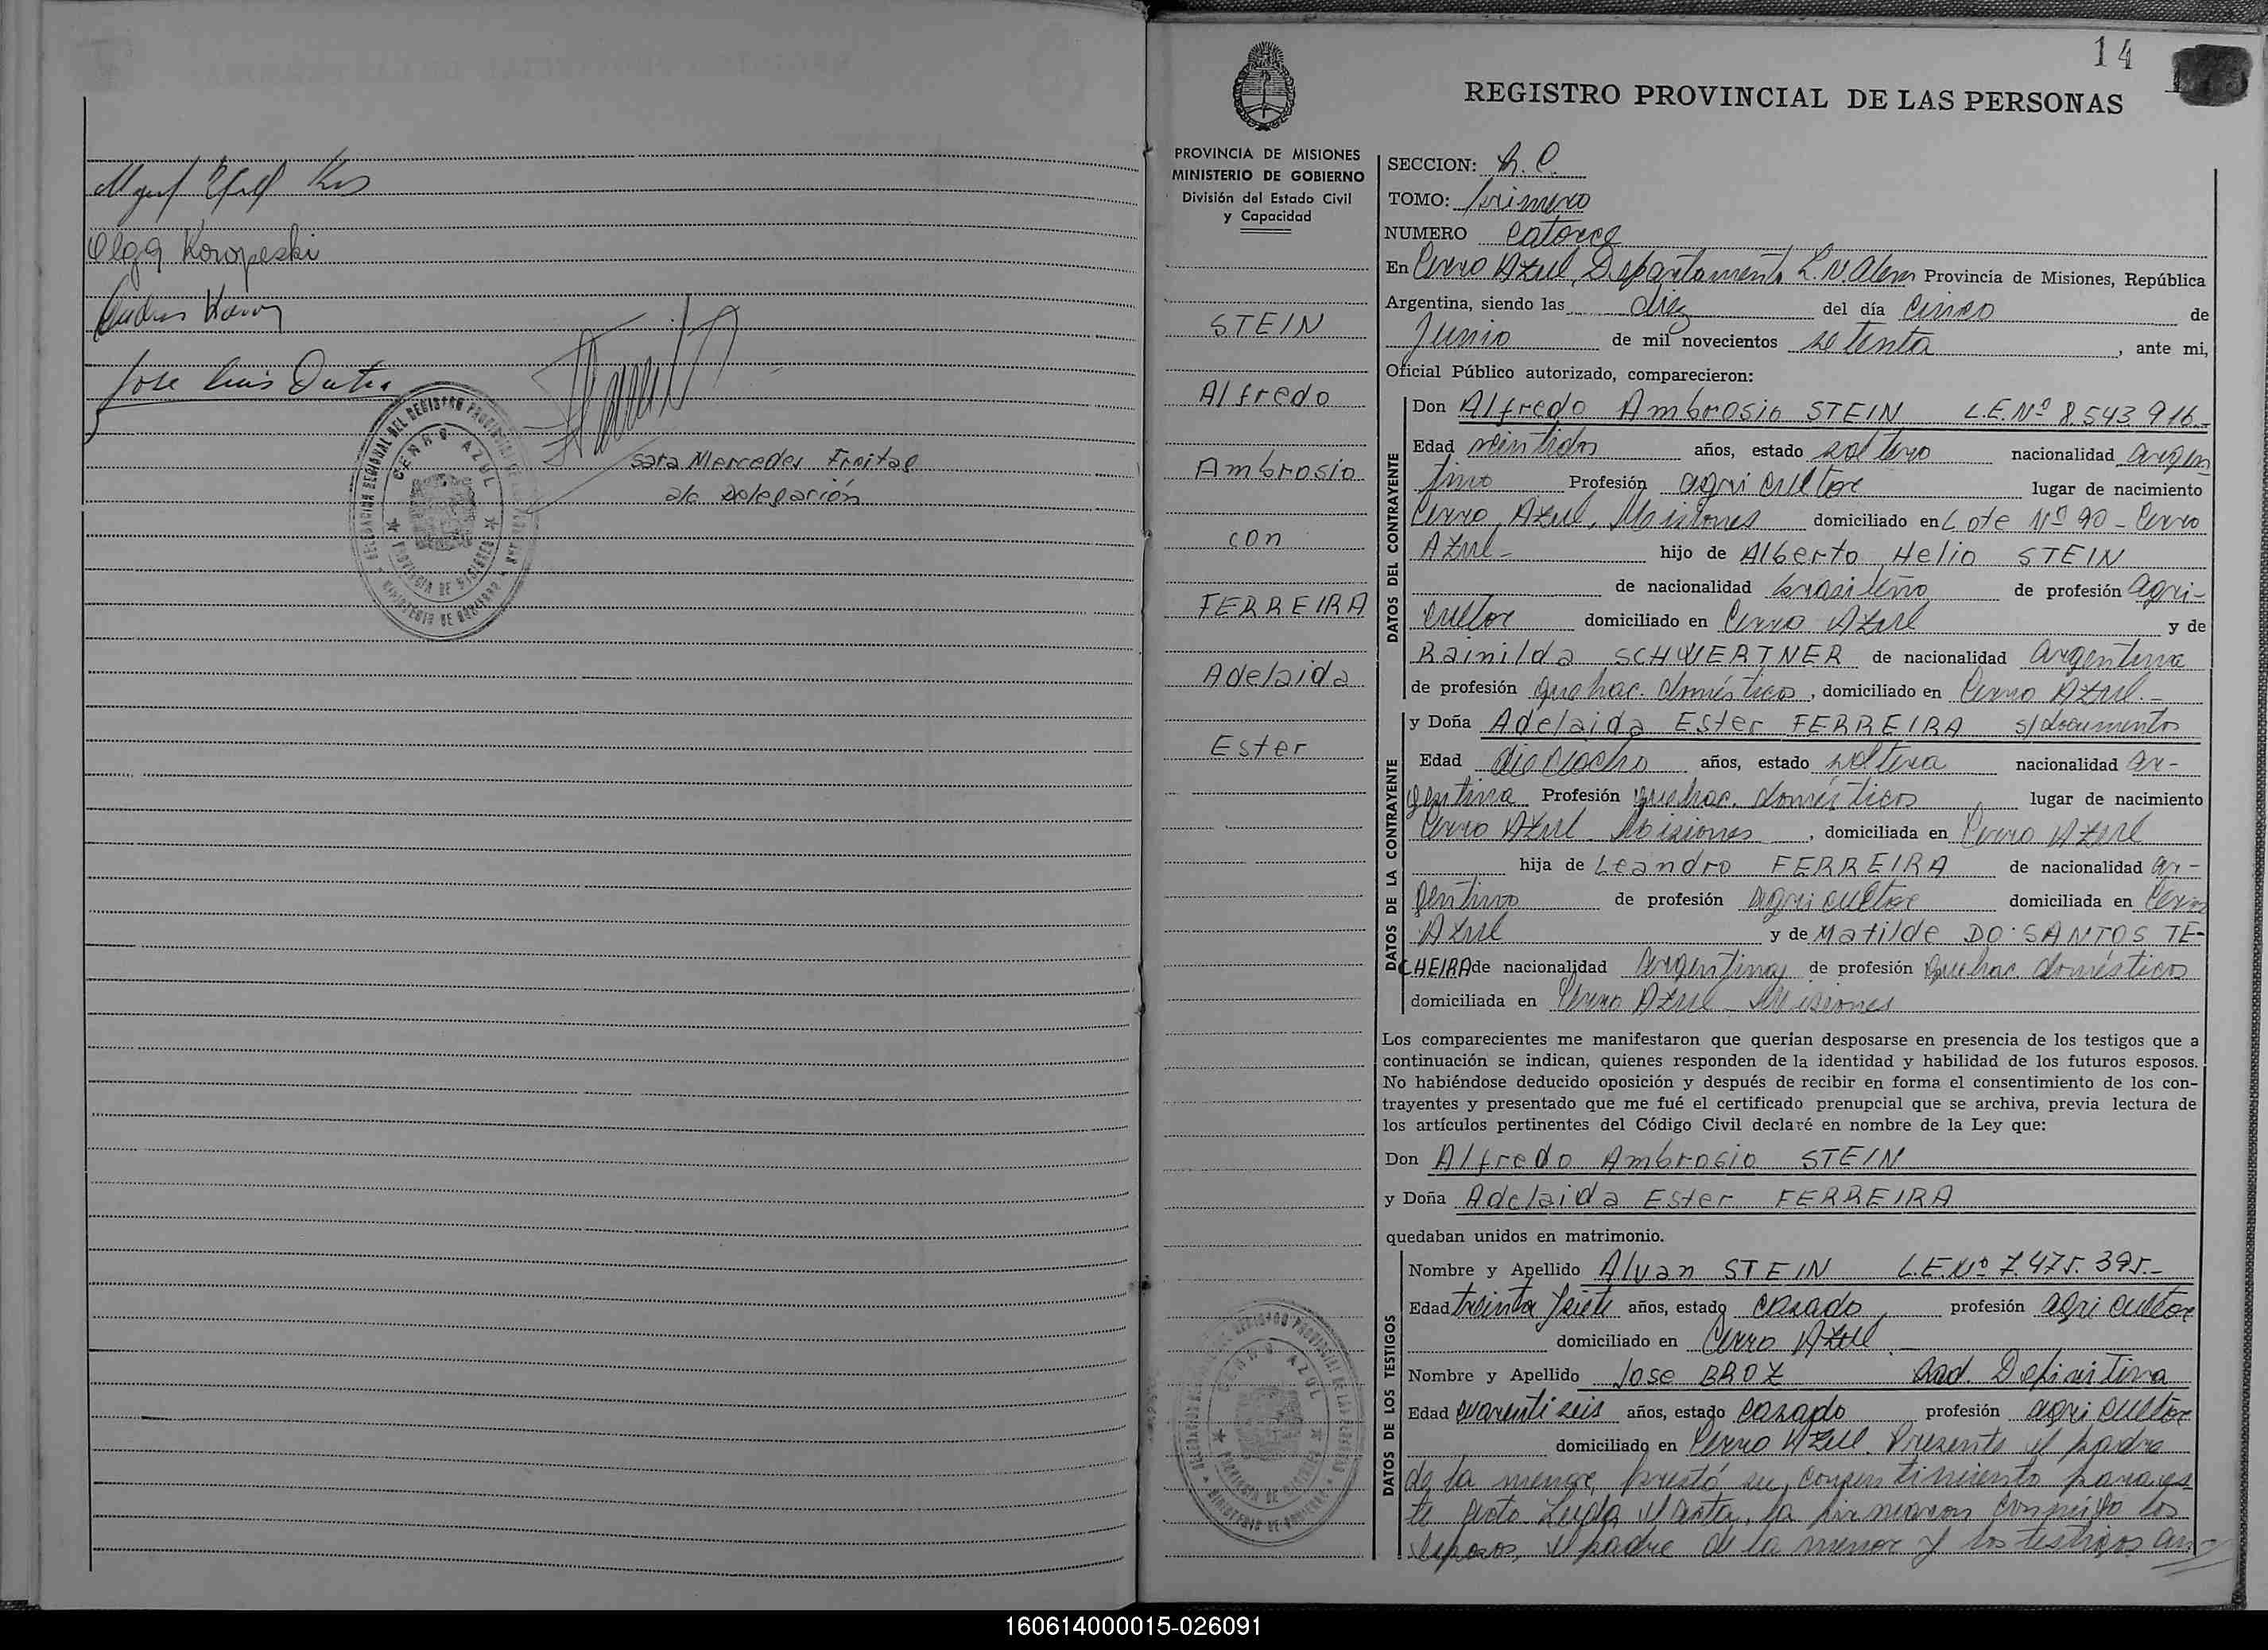 Olga Koropeski
Jose Luis Dutra
DELEGACION REGIONAL DEL REGISTRO PROVINCIAL DE LAS PERSONAS
CERRO AZUL
PROVINCIA DE MISIONES
MINISTERIO DE GOBIERNO
Sara Mercedes Freitag
a/c Delegación
14
REGISTRO PROVINCIAL DE LAS PERSONAS
PROVINCIA DE MISIONES
MINISTERIO DE GOBIERNO
División del Estado Civil
y Capacidad
STEIN
Alfredo
Ambrosio
con
FERREIRA
Adelaida
Ester
SECCION:
TOMO: primero
NUMERO catorce
En Cerro Azul, Departamento L.N. Alem Provincia de Misiones, República
Argentina, siendo las diez del día cinco de
Junio de mil novecientos setenta, ante mi,
Oficial Público autorizado, comparecieron:
DATOS DEL CONTRAYENTE
Don Alfredo Ambrosio STEIN L.E.Nº 8.543.916.-
Edad veintidos años, estado soltero nacionalidad argen
tino Profesión agricultor lugar de nacimiento
Cerro Azul, Misiones domiciliado en Lote Nº 90 - Cerro
Azul- hijo de Alberto Helio STEIN
de nacionalidad brasileño de profesión agri-
cultor domiciliado en Cerro Azul y de
Rainilda SCHWERTNER de nacionalidad argentina
de profesión quehac. domésticos, domiciliado en Cerro Azul.-
DATOS DE LA CONTRAYENTE
y Doña Adelaida Ester FERREIRA s/documentos
Edad dieciocho años, estado soltera nacionalidad ar-
gentina Profesión quehac. domésticos lugar de nacimiento
Cerro Azul Misiones, domiciliada en Cerro Azul
hija de Leandro FERREIRA de nacionalidad ar-
gentino de profesión agricultor domiciliada en Cerro
Azul y de Matilde DO SANTOS TE-
CHEIRA de nacionalidad argentina de profesión quehac. domésticos
domiciliada en Cerro Azul - Misiones
Los comparecientes me manifestaron que querían desposarse en presencia de los testigos que a
continuación se indican, quienes responden de la identidad y habilidad de los futuros esposos.
No habiéndose deducido oposición y después de recibir en forma el consentimiento de los con-
trayentes y presentado que me fué el certificado prenupcial que se archiva, previa lectura de
los artículos pertinentes del Código Civil declaré en nombre de la Ley que:
Don Alfredo Ambrosio STEIN
y Doña Adelaida Ester FERREIRA
quedaban unidos en matrimonio.
DATOS DE LOS TESTIGOS
Nombre y Apellido Alvan STEIN L.E.Nº 7.475.395.-
Edad treinta y siete años, estado casado profesión agricultor
domiciliado en Cerro Azul.
Nombre y Apellido Jose BROZ Rad. Definitiva
Edad cuarentiseis años, estado casado profesión agricultor
domiciliado en Cerro Azul. Presente el padre
de la menor, prestó su consentimiento para es
te acto. Leida el acta, la firmaron conmigo los
esposos, el padre de la menor y los testigos an-
CERRO AZUL
PROVINCIA DE MISIONES
160614000015-026091